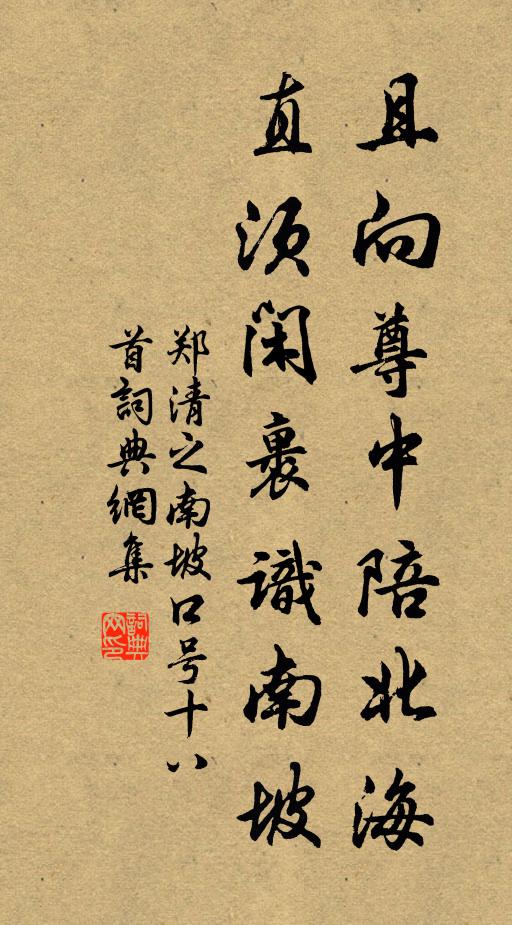 且向尊中陪北海
直须闲裹識南坡
郑清之南坡口号十八
首詞典網集
詞典網印